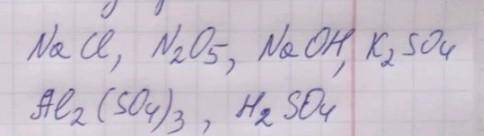 NaCl, N₂O₅, NaOH, K₂SO₄
Al₂(SO₄)₃, H₂SO₄